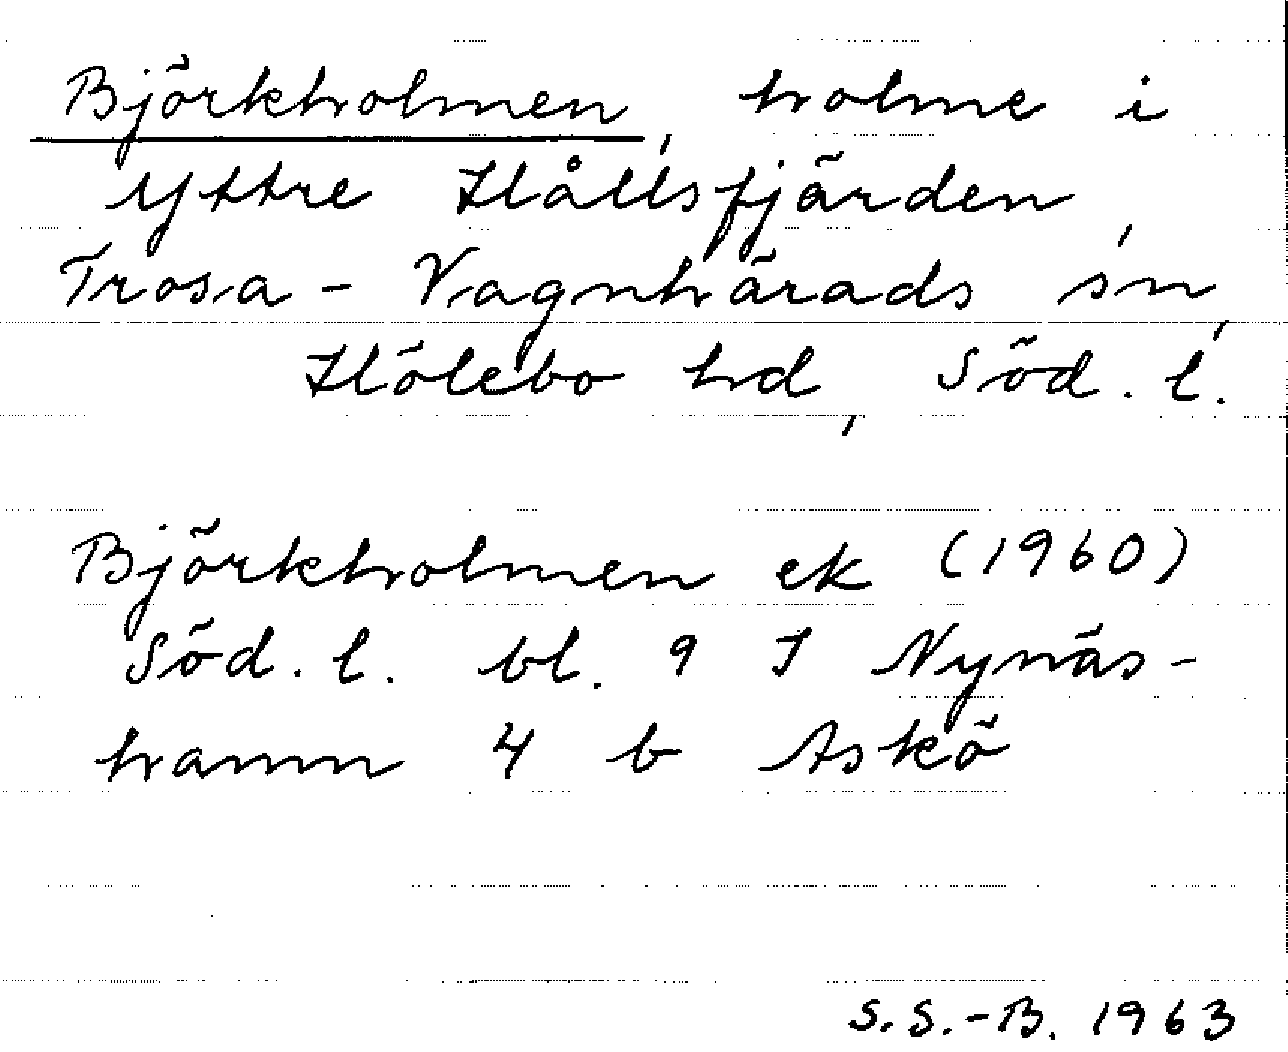 Björkholmen, holme i
Yttre Hållsfjärden,
Trosa-Vagnhärads sn,
Hölebo hd, Söd. l.
Björkholmen ek (1960)
Söd. l. bl. 9 I Nynäs-
hamn 4 b Askö
S.S.-B. 1963